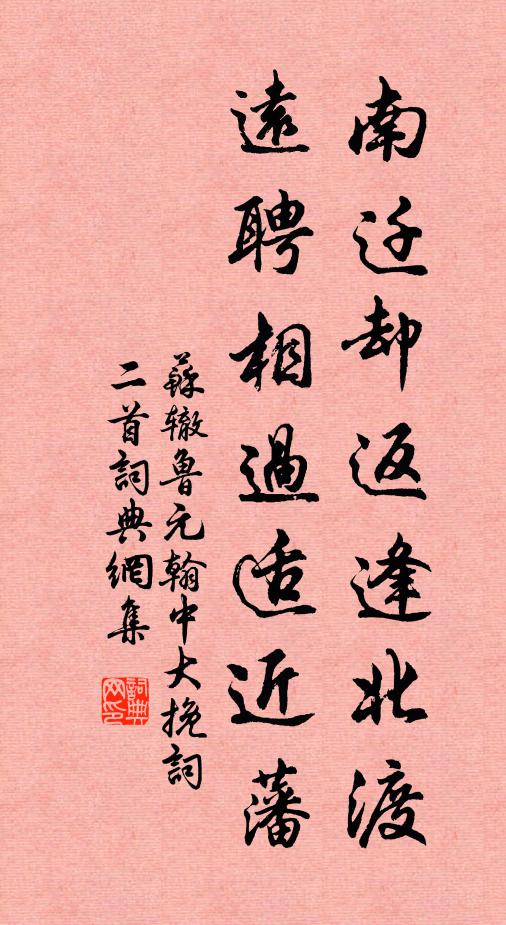 南迁却返逢北渡
遠聘相過适近藩
蘇辙魯元翰中大挽詞
二首詞典網集
詞典網印